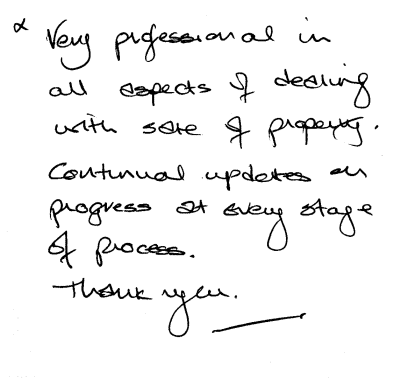 * Very professional in
all aspects of dealing
with sale of property.
Continual updates on
progress at every stage
of process.
Thank you.